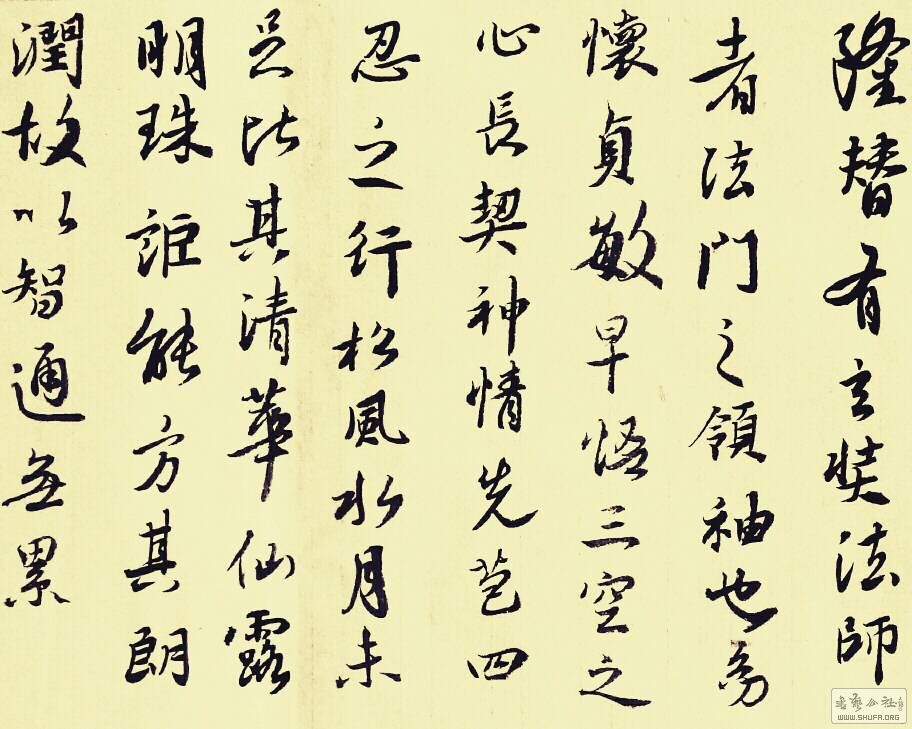 隆替有玄奘法師
者法門之領袖也幼
懷貞敏早悟三空之
心長契神情先苞四
忍之行松風水月未
足比其清華仙露
明珠詎能方其朗
潤故以智通無累
書藝公社
WWW.SHUFA.ORG